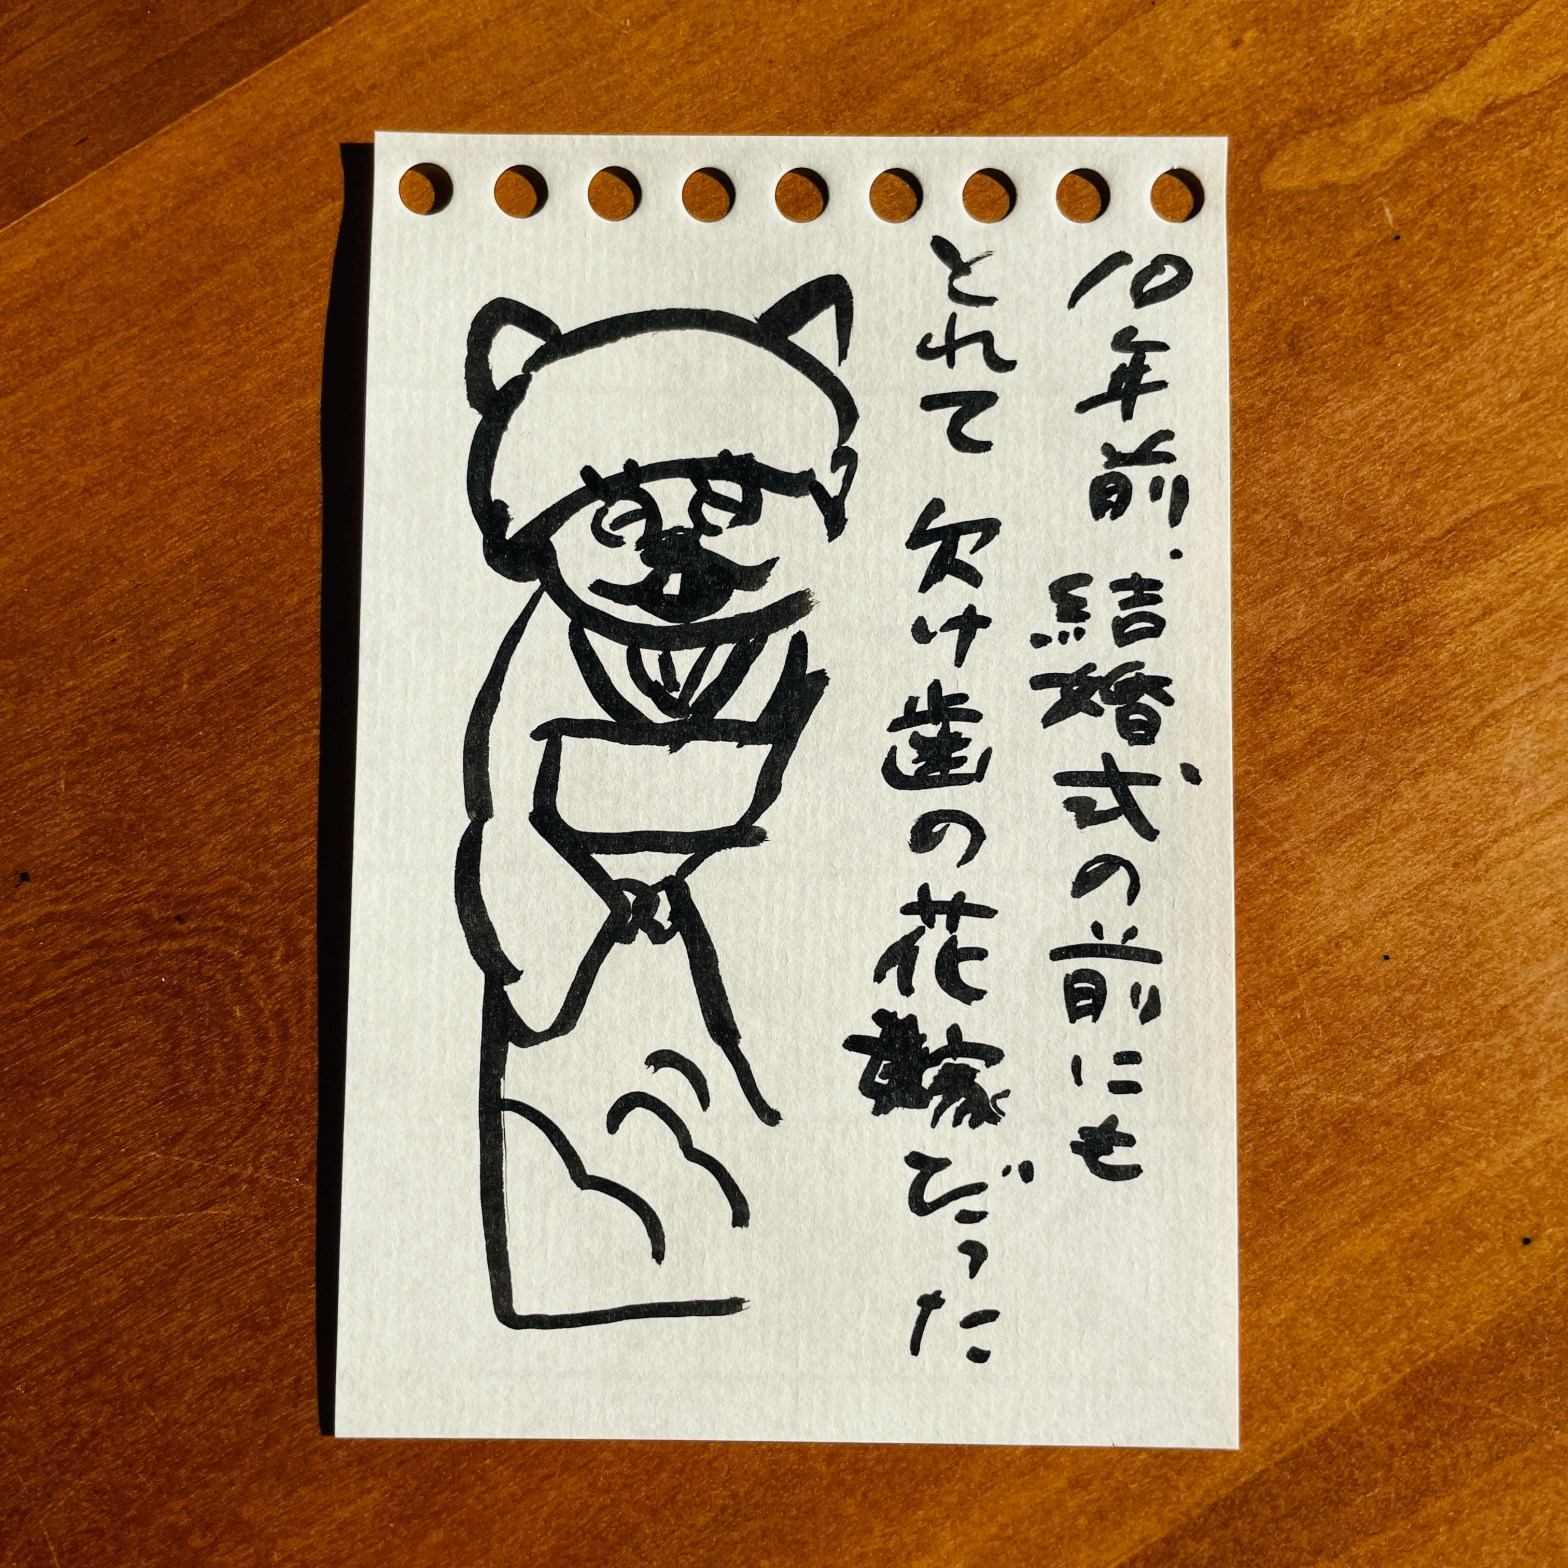 10年前.結婚式の前にも
とれて欠け歯の花嫁だった